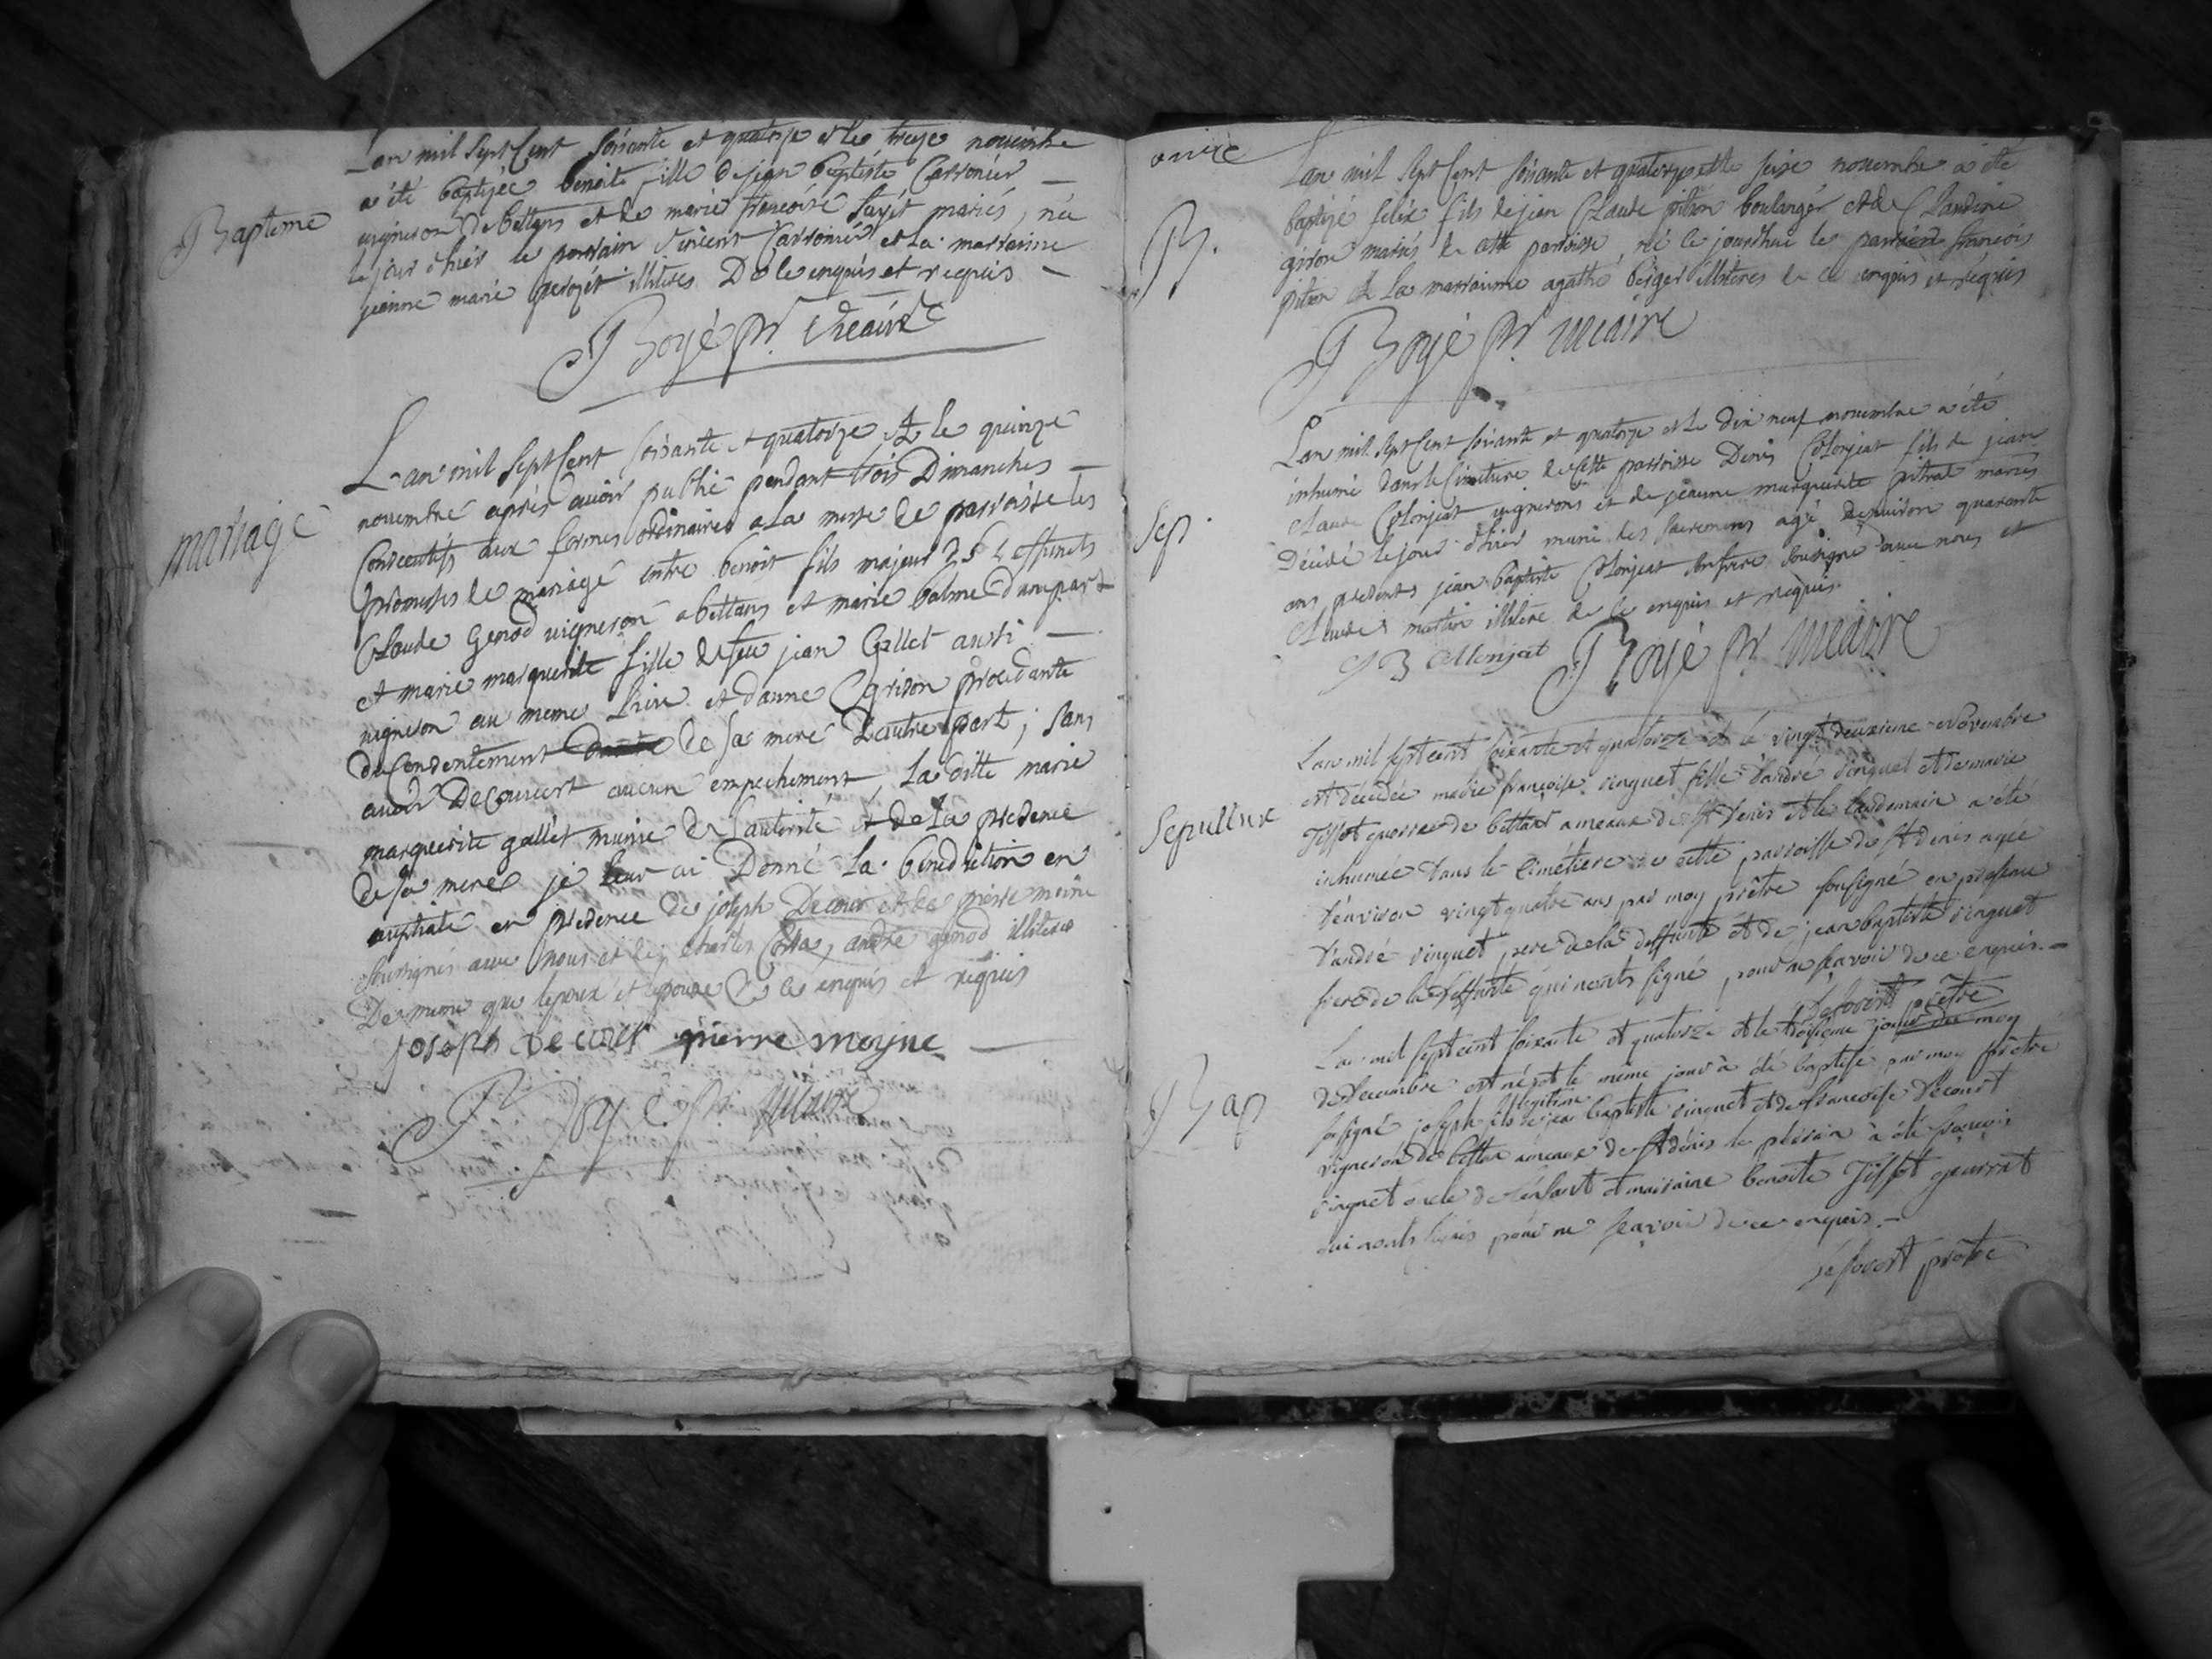 Lan mil sept Cent soisante et quatorze et le treze novembre
a été baptisée benoite fille de jean baptiste Carronier
Bapteme
vigneron de bettans et de marie francoise sayét mariés, née
le jour d'hier le parrain vincent Carronier et la marrainne
jeanne marie perozét illitéres De ce enquis et requis
Boyé pr. vicaire
L'an mil Sept Cent soisante et quatorze et le quinze
novembre après avoir publié pendant trois Dimanches
mariage
Consecutifs aux formes ordinaires a La messe de parroisse les
promesses de mariage entre benoit fils majeur de
Claude Genod vigneron a bettans et marie balme d'une part
et marie marguerite fille de feu jean Gallet aussi
vigneron au meme Lieu et d'anne Grison procedante
du Consentement de sa mere D'autre part ; sans
avoir Decouvert aucun empechement, La ditte marie
marguerite gallet munie de l'autorité et de La presence
de sa mere je leur ai Donné La benediction en
nuptiale en presence de joseph Decour et de pierre moine
soussignés avec nous et de charles Cotta, andré genod illiteres
De meme que l'epoux et epouse De ce enquis et requis
joseph de cour pierre moyne
Boyé pr. vicaire
Lan mil Sept Cent soisante et quatorze et le seize novembre a été
B.
baptizé felix fils de jean Claude pition boulanger et de Claudine
giron mariés de cette parroisse né le jourdhui le parrain francois
pition et La marrainne agathe berger illitéres de ce enquis et requis
Boyé pr. vicaire
Lan mil Sept Cent soisante et quatorze et le dix neuf novembre a été
inhumé dans le Cimetiere de cette parroisse Denis Colonjat fils de jean
Claude Colonjat vignerons et de jeanne marguerite pitrat mariés
Sep.
Décedé le jour d'hier muni des sacremens agé denviron quarante
ans presents jean baptiste Colonjat son frere soussigné avec nous et
Claude martin illitére de ce enquis et requis
J B Collonjat Boyé pr. vicaire
L'an mil septcent soixante et quatorze et le vingt deuxieme novembre
est décédée marie françoise vinguet fille d'andré vinguet et de marie
Sepulture
Tissot guerre de bettans ameaux de St Denis et le lendemain a été
inhumée dans le cimétiere de cette parroisse de St denis agée
d'environ vingt quatre ans par moy prêtre sousigné en presence
d'andré vinguet pere de la deffunte et de jean baptiste vinguet
frere de la deffunte qui n'onts signé pour ne sçavoir de ce enquis.
deforest prêtre
L'an mil septcent soixante et quatorze et le troisieme jour du moy
de decembre est né et le même jour à été baptisé par moy prêtre
Bap
sousigné joseph fils légitime de jean baptiste vinguet et de françoise Decourt
vigneron de bettan ameaux de St denis le parrain à été françois
vinguet oncle de l'enfant et mairaine benoite Tissot
qui n'onts signés pour ne sçavoir de ce enquis.
deforest prêtre